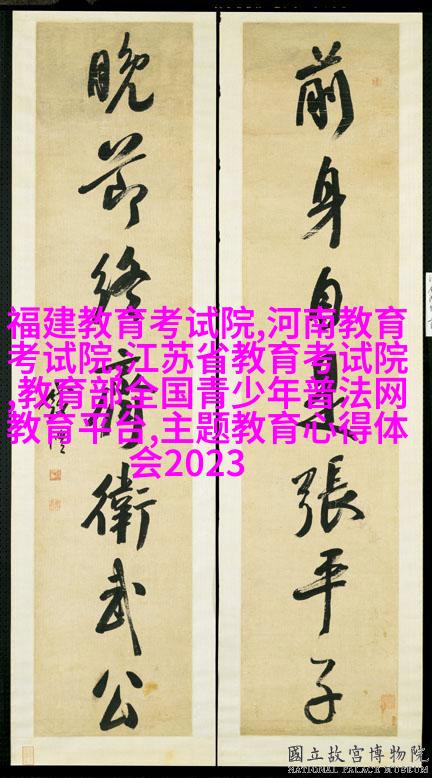 前身自是張平子
晚節終衛武公
福建教育考试院,河南教育
考试院,江苏省教育考试院
,教育部全国青少年普法网
教育平台,主题教育心得体
会2023
國立故宮博物院
NATIONAL PALACE MUSEUM